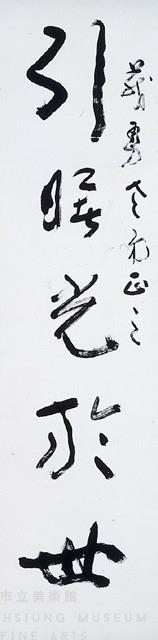 義勇老弟正之
引曙光於世
市立美術館
HSIUNG MUSEUM
FINE ARTS